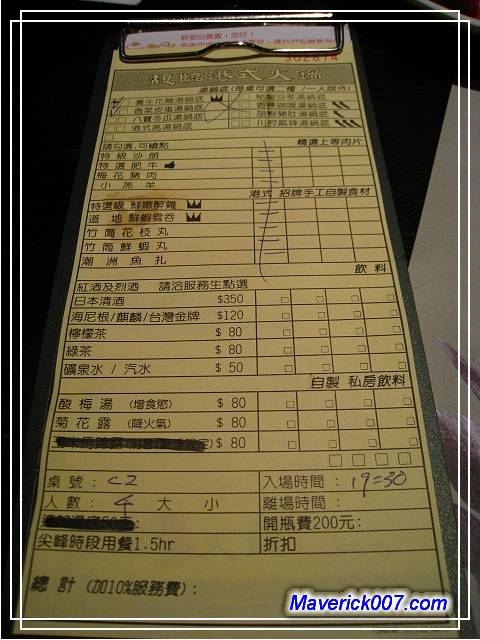 親愛的貴賓，您好！
302814
複臨港式火鍋
湯鍋底 (每桌可選二種 / 一人除外)
養生花雕湯鍋底 秘製沙爹湯鍋底
香菜皮蛋湯鍋底 香辣咖哩湯鍋底
八寶冬瓜湯鍋底 胡椒豬肚湯鍋底
港式高湯鍋底 川府麻辣湯鍋底
請勾選,可續點 精選上等肉片
特級沙朗
特選肥牛
梅花豬肉
小羔羊
港式 招牌手工自製食材
特選級 鮮嫩醉雞
道地鮮蝦雲吞
竹筒花枝丸
竹筒鮮蝦丸
潮洲魚扎
飲料
紅酒及烈酒 請洽服務生點選
日本清酒 $350
海尼根/麒麟/台灣金牌 $120
檸檬茶 $ 80
綠茶 $ 80
礦泉水 / 汽水 $ 50
自製 私房飲料
酸梅湯 (增食慾) $ 80
菊花露 (降火氣) $ 80
$ 80
桌號：C2 入場時間：19=30
人數：4 大 小 離場時間：
開瓶費200元:
尖峰時段用餐1.5hr 折扣
總計 (加10%服務費)：
Maverick007.com